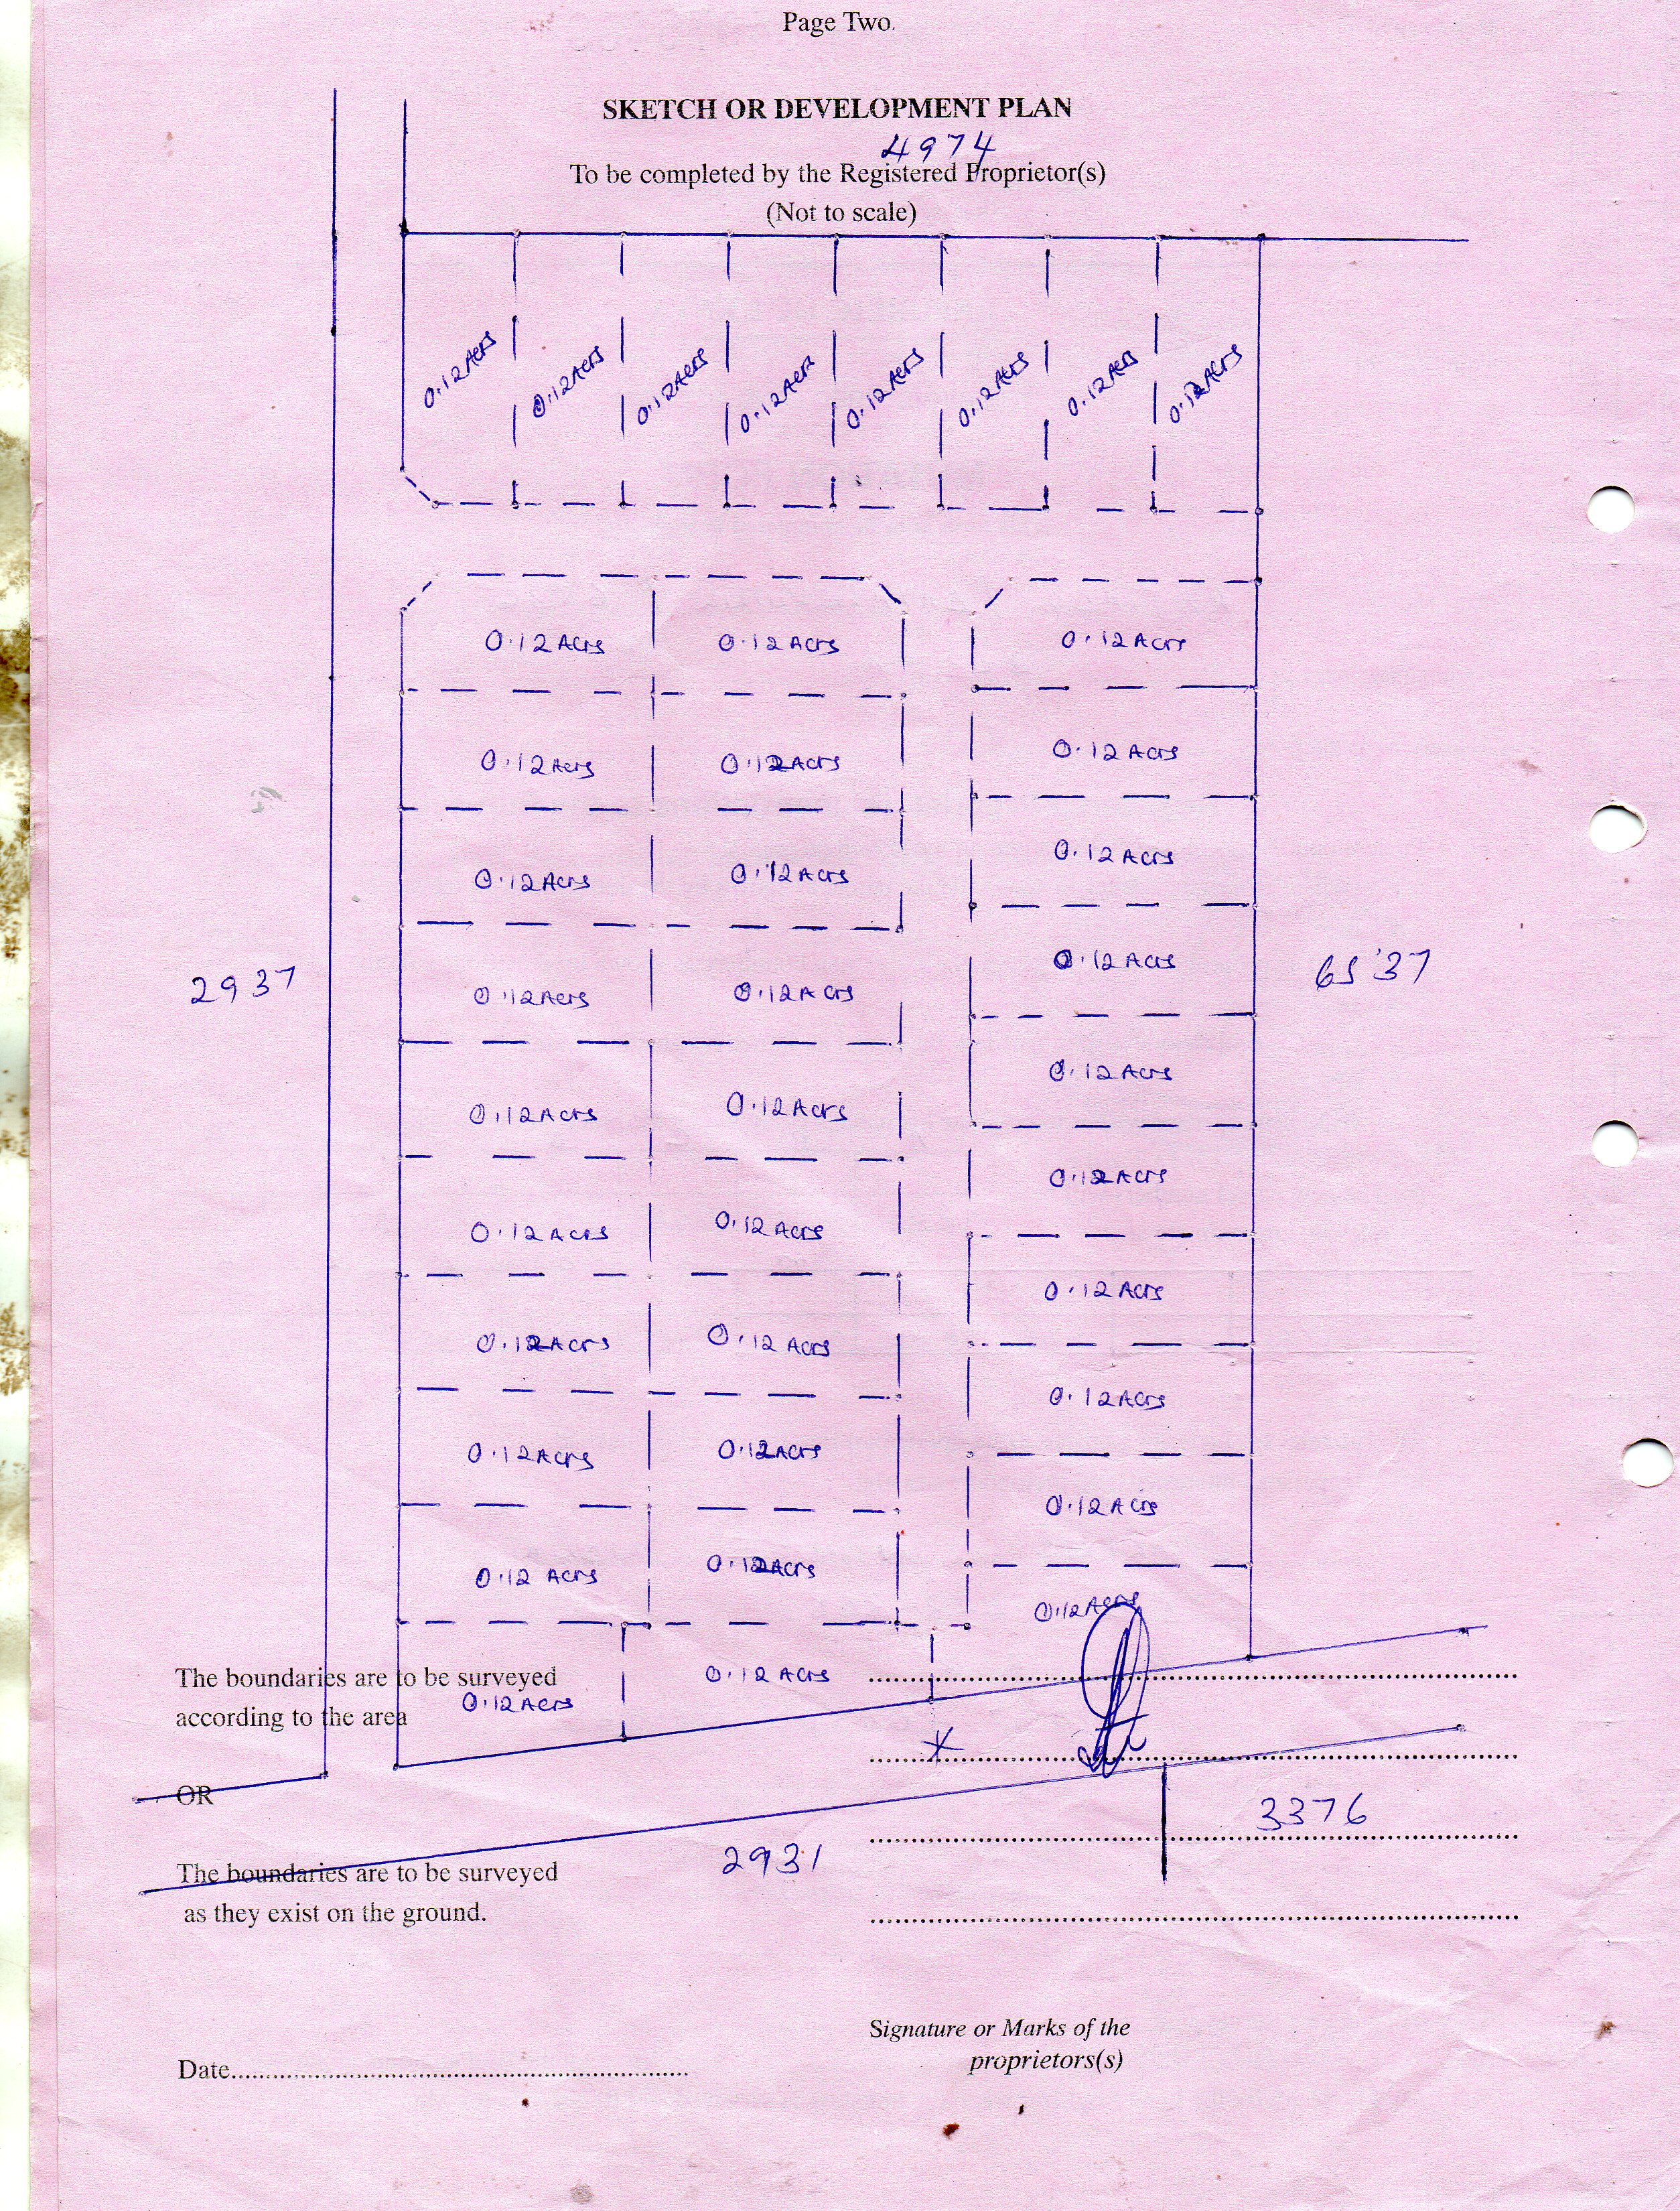 Page Two.
SKETCH OR DEVELOPMENT PLAN
4974
To be completed by the Registered Proprietor(s)
(Not to scale)
0.12 Acrs 0.12 Acrs 0.12 Acrs 0.12 Acrs 0.12 Acrs 0.12 Acrs 0.12 Acrs 0.12 Acrs
0.12 Acrs 0.12 Acrs 0.12 Acrs
0.12 Acrs 0.12 Acrs 0.12 Acrs
0.12 Acrs 0.12 Acrs 0.12 Acrs
2937 0.12 Acrs 0.12 Acrs 0.12 Acrs 6537
0.12 Acrs 0.12 Acrs 0.12 Acrs
0.12 Acrs 0.12 Acrs 0.12 Acrs
0.12 Acrs 0.12 Acrs 0.12 Acrs
0.12 Acrs 0.12 Acrs 0.12 Acrs
0.12 Acrs 0.12 Acrs 0.12 Acrs
0.12 Acrs
The boundaries are to be surveyed 0.12 Acrs
according to the area 0.12 Acrs
OR
3376
The boundaries are to be surveyed 2931
as they exist on the ground.
Signature or Marks of the
proprietors(s)
Date